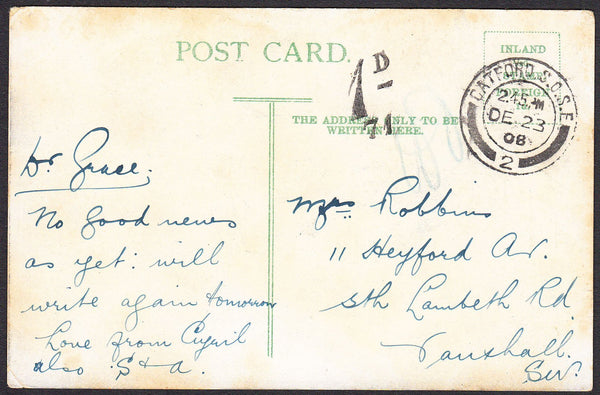 POST CARD.
INLAND
FOREIGN
1D
71
CATFORD S.O. S.E
2.45 PM
DE 23
08
2
THE ADDRESS ONLY TO BE
WRITTEN HERE.
Dr Grace,
No good news
as yet: will
write again tomorrow
Love from Cyril
also S & a.
Mrs Robbins
11 Heyford Av.
Sth Lambeth Rd
Vauxhall.
S.W.